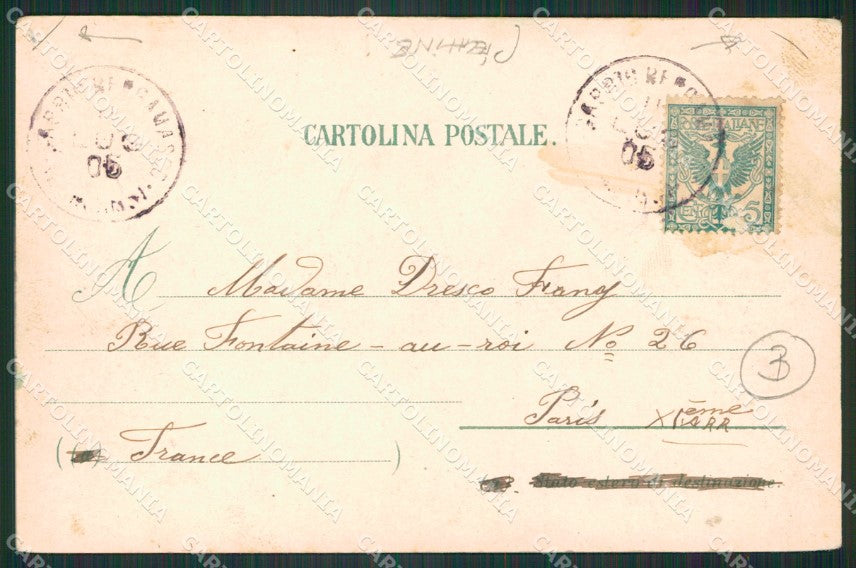 CARTOLINA POSTALE.
05
05
5
A Madame Dresco Frany
Rue Fontaine - au - roi No 26
3
Paris XIème ARR
(a France)
a Stato estero di destinazione
CARTOLINOMANIA